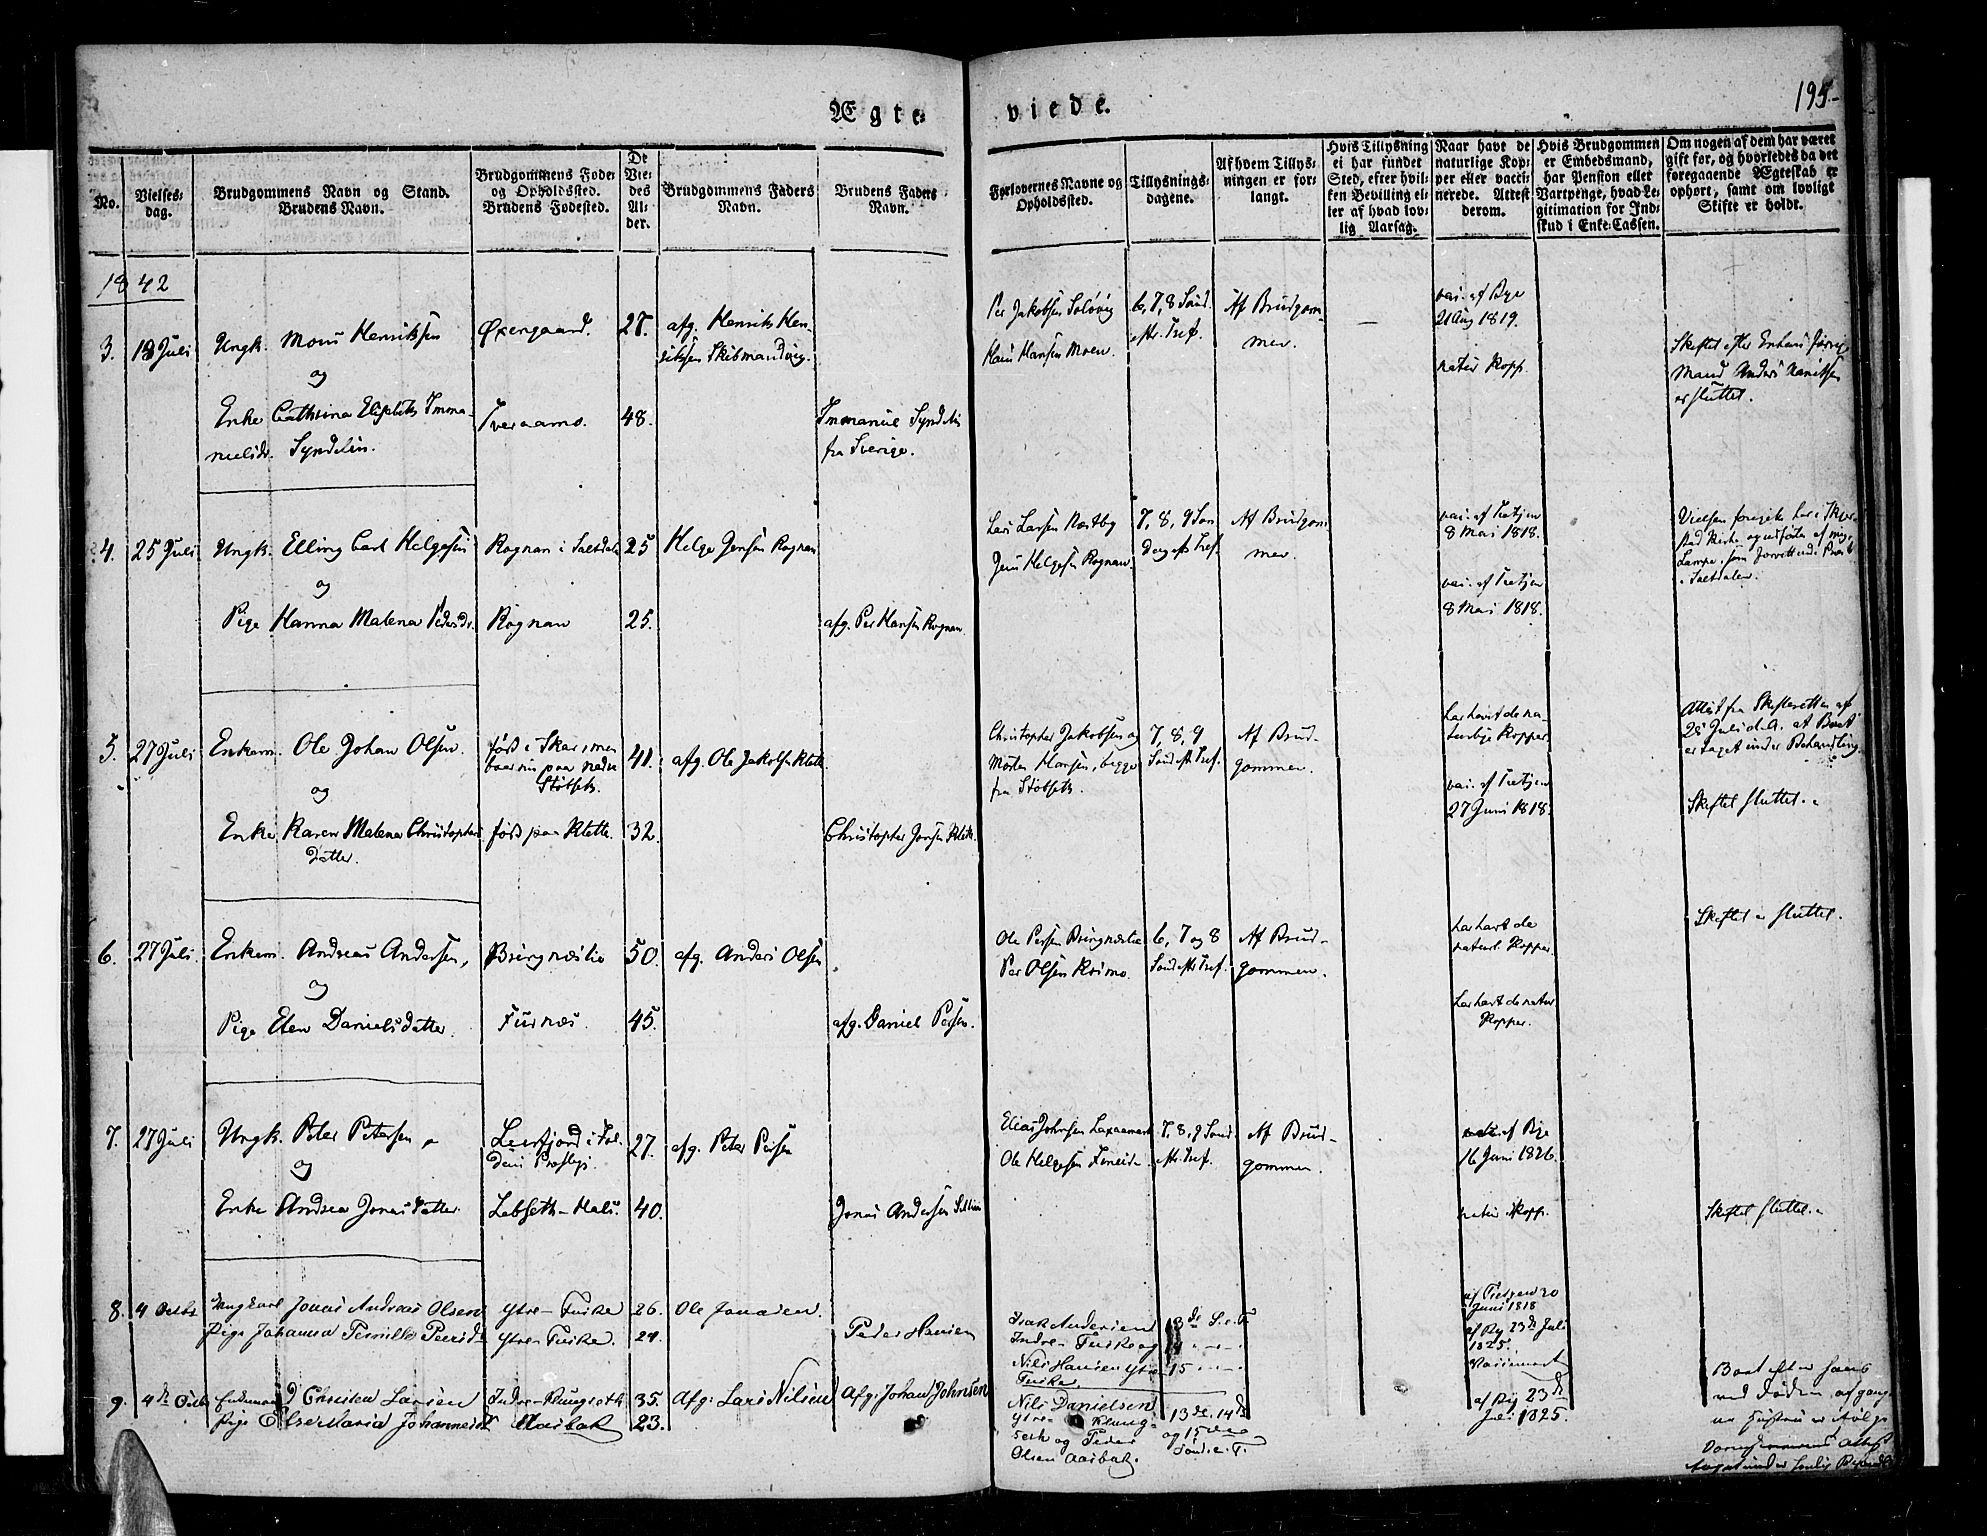 Ægte-
viede.
195.-
No.
Vielses-
dag.
Brudgommens Navn og Stand.
Brudens Navn.
Brudgommens Føde-
og Opholdssted.
Brudens Fødested.
De
Vie-
des
Al-
der.
Brudgommens Faders
Navn.
Brudens Faders
Navn.
Forlovernes Navne og
Opholdssted.
Tillysnings-
dagene.
Af hvem Tillys-
ningen er for-
langt.
Hvis Tillysning
ei har fundet
Sted, efter hvil-
ken Bevilling el-
ler af hvad lov-
lig Aarsag.
Naar havt de
naturlige Kop-
per eller vacci-
nerede. Attest
derom.
Hvis Brudgommen
er Embedsmand,
har Pension eller
Vartpenge, hvad Le-
gitimation for Ind-
skud i Enke-Cassen.
Om nogen af dem har været
gift før, og hvorledes da det
foregaaende Ægteskab er
ophørt, samt om lovligt
Skifte er holdt.
1842
3. 18 Juli Ungk. Mons Henriksen
og
Enke Cathrina Elisabeth Imma-
nuelsdr. Syndelin.
Øxengaard. 27.
48.
afg. Henrik Hen-
riksen
Immanuel Syndelin
fra Sverige.
Per Jakobsen
Hans Hansen Moen.
6, 7, 8 Sønd.
eftr. Tref.
Af Brudgom-
men.
vac. af Bye
21 Aug 1819.
natur Kopp.
Skiftet efter Enkens forrige
Mand Anders
er sluttet.
4. 25 Juli Ungk. Elling Carl Helgesen
og
Pige Hanna Malena Pedersdr.
Rognan i Saltdalen 25
Rognan 25.
Helge Jensen Rognan
afg. Per Hansen Rognan.
Lars Larsen Næstby
Jens Helgesen Rognan.
7, 8, 9 Søn
Dag eft Tref.
Af Brudgom
men.
vac. af Tretjen
8 Mai 1818.
vac. af Tretjen
8 Mai 1818.
Vielsen foregik her i Skjer-
stad Kirke og udførtes af mig,
Lampe, som forrettende Præst
i Saltdalen.
5. 27 Juli Enkem. Ole Johan Olsen.
og
Enke Karen Malena Christophers
Datter.
født i Skar, men
boer nu paa nedre
Støbseth.
41.
født paa Klette. 32.
afg. Ole Jakobsen Klette
Christopher Jensen Klette.
Christopher Jakobsen og
Morten Hansen, begge
fra Støbseth.
7, 8, 9
Sønd eft Tref.
Af Brud-
gommen.
har havt de na-
turlige Kopper.
vac. af Tretjen
27 Juni 1818.
Attest fra Skifteretten af
25 Juli d.A. at Boet
er taget under Behandling.
Skiftet sluttet.
6. 27 Juli. Enkem. Andreas Andersen,
og
Pige Elen Danielsdatter.
Bringnæslie 50.
Furnæs. 45.
afg. Anders Olsen
afg. Daniel Persen.
Ole Persen Bringnæslie
Per Olsen
6, 7 og 8
Sønd eftr Tref.
Af Brud-
gommen.
har havt de
naturl. Kopper.
har havt de natur
Kopper.
Skiftet er sluttet.
7. 27 Juli Ungk. Peter Petersen
og
Enke Andrea Jonasdatter.
Leerfjord i Fol-
dens Præstegj. 27.
Løbseth-Hals. 40.
afg. Peter Persen
Jonas Andersen
Elias Johnsen Laxaamark
Ole Helgesen Fineide.
7, 8, 9 Sønd.
eftr. Tref.
Af Brud-
gommen.
vac. af Bye
16 Juni 1826.
natur Kopp.
Skiftet sluttet.
8. 4 Octbr Ungkarl Jonas Andreas Olsen
Pige Johanna Pernille Peersdr
Ytre-Fuske 26.
Ytre-Fuske. 24.
Ole Jonassen.
Peder Hansen
Isak Andersen
Indre-Fuske og
Nils Hansen Ytre
Fuske.
13de S. e. T.
14 - - -
15 - - -
af Tretjen 20
Juni 1818
af By 23de Juli
1825.
9. 4de Octbr Enkemand Christen Larsen
Pige Else Maria Johannesdr
Indre-Klungseth 35.
Aasbak 23.
Afg. Lars Nilsen
Afg. Johan Johnsen
Nils Danielsen
Ytre-Klung-
seth og Peder
Olsen Aasbak.
13de, 14de
og 15de
Sønd. e. T.
af By 23de
Juli 1825.
Boet efter hans
ved Døden afgang-
ne Hustru er ifølge